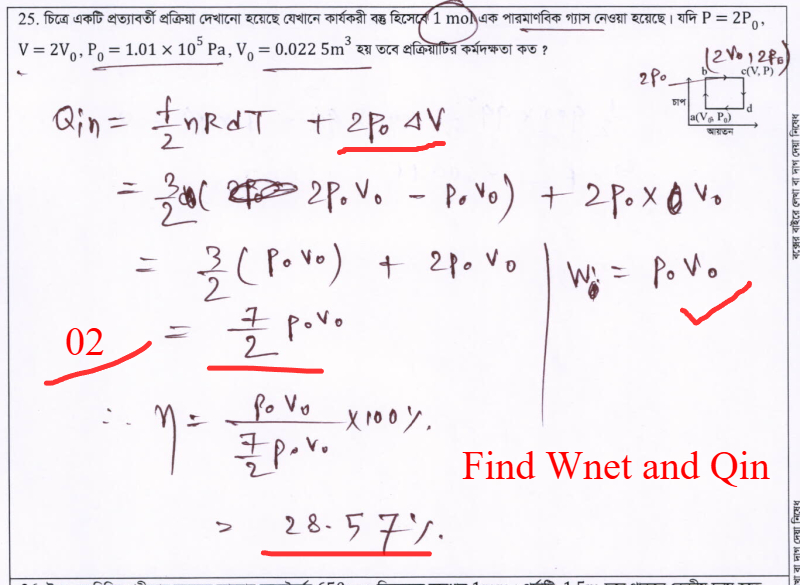 25. চিত্রে একটি প্রত্যাবর্তী প্রক্রিয়া দেখানো হয়েছে যেখানে কার্যকরী বস্তু হিসেবে 1 mol এক পারমাণবিক গ্যাস নেওয়া হয়েছে। যদি P = 2P₀,
V = 2V₀, P₀ = 1.01 × 10⁵ Pa, V₀ = 0.022 5m³ হয় তবে প্রক্রিয়াটির কর্মদক্ষতা কত ?
(2V₀, 2P₀)
2P₀ b c(V, P)
চাপ
d
a(V₀, P₀)
আয়তন
Qin = f/2 nRdT + 2P₀ ΔV
= 3/2 ( 2P₀V₀ - P₀V₀) + 2P₀ × V₀
= 3/2 (P₀V₀) + 2P₀V₀
W = P₀V₀
= 7/2 P₀V₀
02
∴ η = P₀V₀ / 7/2 P₀V₀ × 100%.
Find Wnet and Qin
= 28.57%.
বক্সের বাইরে লেখা বা দাগ দেয়া নিষেধ
বা দাগ দেয়া নিষেধ